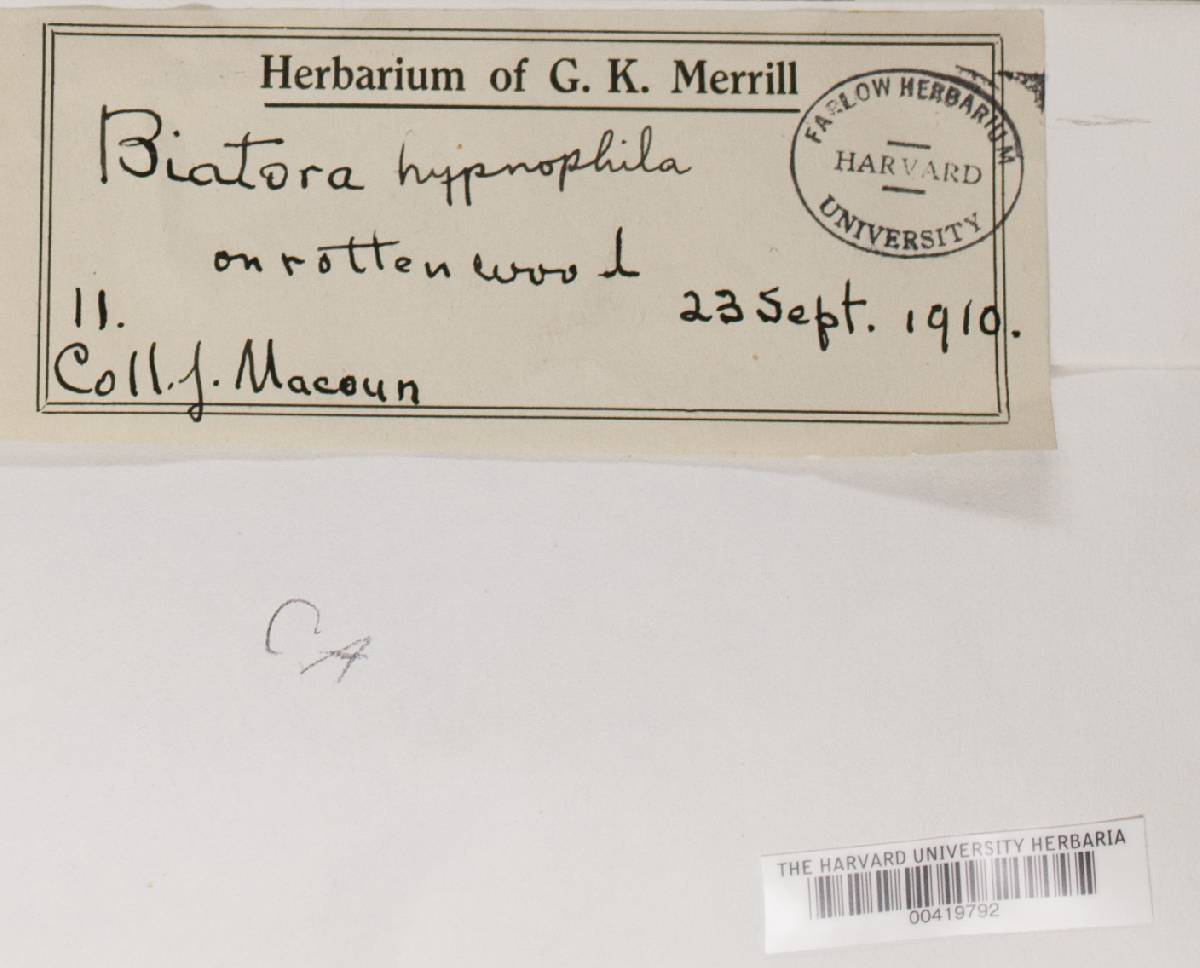 Herbarium of G. K. Merrill
FARLOW HERBARIUM
HARVARD
UNIVERSITY
Biatora hypnophila
on rotten wood
11.
23 Sept. 1910.
Coll. J. Macoun
CA
THE HARVARD UNIVERSITY HERBARIA
00419792